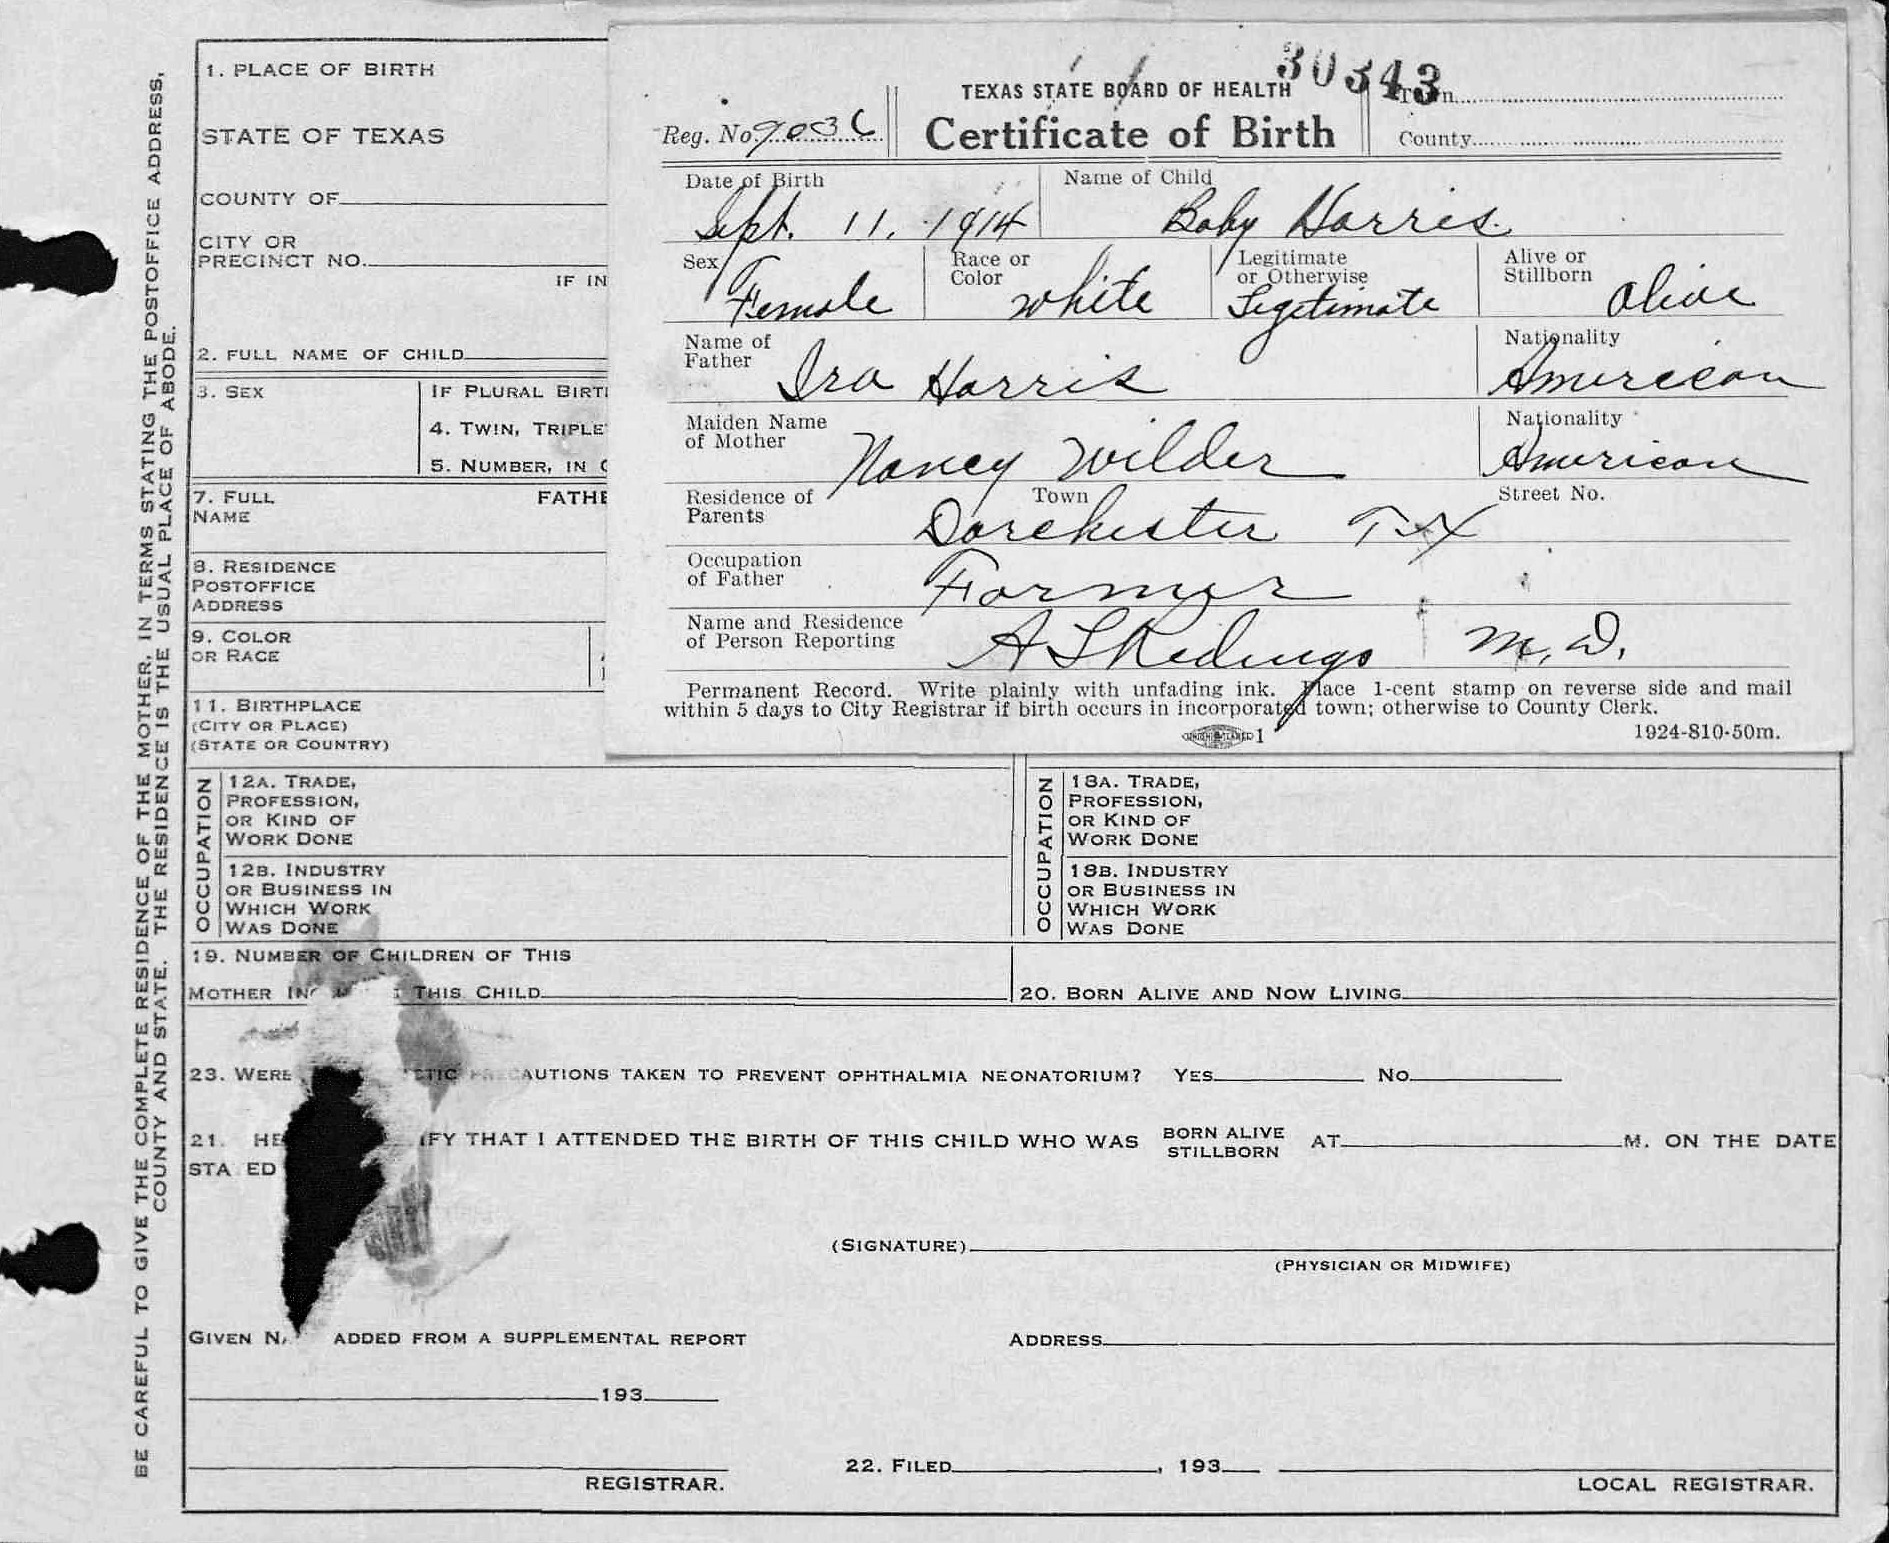 BE CAREFUL TO GIVE THE COMPLETE RESIDENCE OF THE MOTHER, IN TERMS STATING THE POSTOFFICE ADDRESS,
COUNTY AND STATE. THE RESIDENCE IS THE USUAL PLACE OF ABODE.
1. PLACE OF BIRTH
STATE OF TEXAS
COUNTY OF
CITY OR
PRECINCT NO.
IF IN
2. FULL NAME OF CHILD
3. SEX
IF PLURAL BIRT
4. TWIN, TRIPLE
5. NUMBER, IN
7. FULL
NAME
FATHE
8. RESIDENCE
POSTOFFICE
ADDRESS
9. COLOR
OR RACE
11. BIRTHPLACE
(CITY OR PLACE)
(STATE OR COUNTRY)
30343
TEXAS STATE BOARD OF HEALTH
Town
Reg. No.
Certificate of Birth
County
Date of Birth
Name of Child
Sept. 11, 1914
Baby Harris
Sex
Race or
Color
Legitimate
or Otherwise
Alive or
Stillborn
Female
white
Legitimate
Alive
Name of
Father
Nationality
Ira Harris
American
Maiden Name
of Mother
Nationality
Nancy Wilder
American
Residence of
Parents
Town
Street No.
Dorchester Tex
Occupation
of Father
Farmer
Name and Residence
of Person Reporting
A L Ridings M.D.
Permanent Record. Write plainly with unfading ink. Place 1-cent stamp on reverse side and mail
within 5 days to City Registrar if birth occurs in incorporated town; otherwise to County Clerk.
1
1924-810-50m.
OCCUPATION
12A. TRADE,
PROFESSION,
OR KIND OF
WORK DONE
12B. INDUSTRY
OR BUSINESS IN
WHICH WORK
WAS DONE
OCCUPATION
18A. TRADE,
PROFESSION,
OR KIND OF
WORK DONE
18B. INDUSTRY
OR BUSINESS IN
WHICH WORK
WAS DONE
19. NUMBER OF CHILDREN OF THIS
MOTHER THIS CHILD
20. BORN ALIVE AND NOW LIVING
23. WERE AUTIONS TAKEN TO PREVENT OPHTHALMIA NEONATORIUM? YES NO
21. HE IFY THAT I ATTENDED THE BIRTH OF THIS CHILD WHO WAS BORN ALIVE STILLBORN AT M. ON THE DATE
STA ED
(SIGNATURE)
(PHYSICIAN OR MIDWIFE)
GIVEN NA ADDED FROM A SUPPLEMENTAL REPORT
ADDRESS
193
22. FILED , 193
REGISTRAR.
LOCAL REGISTRAR.